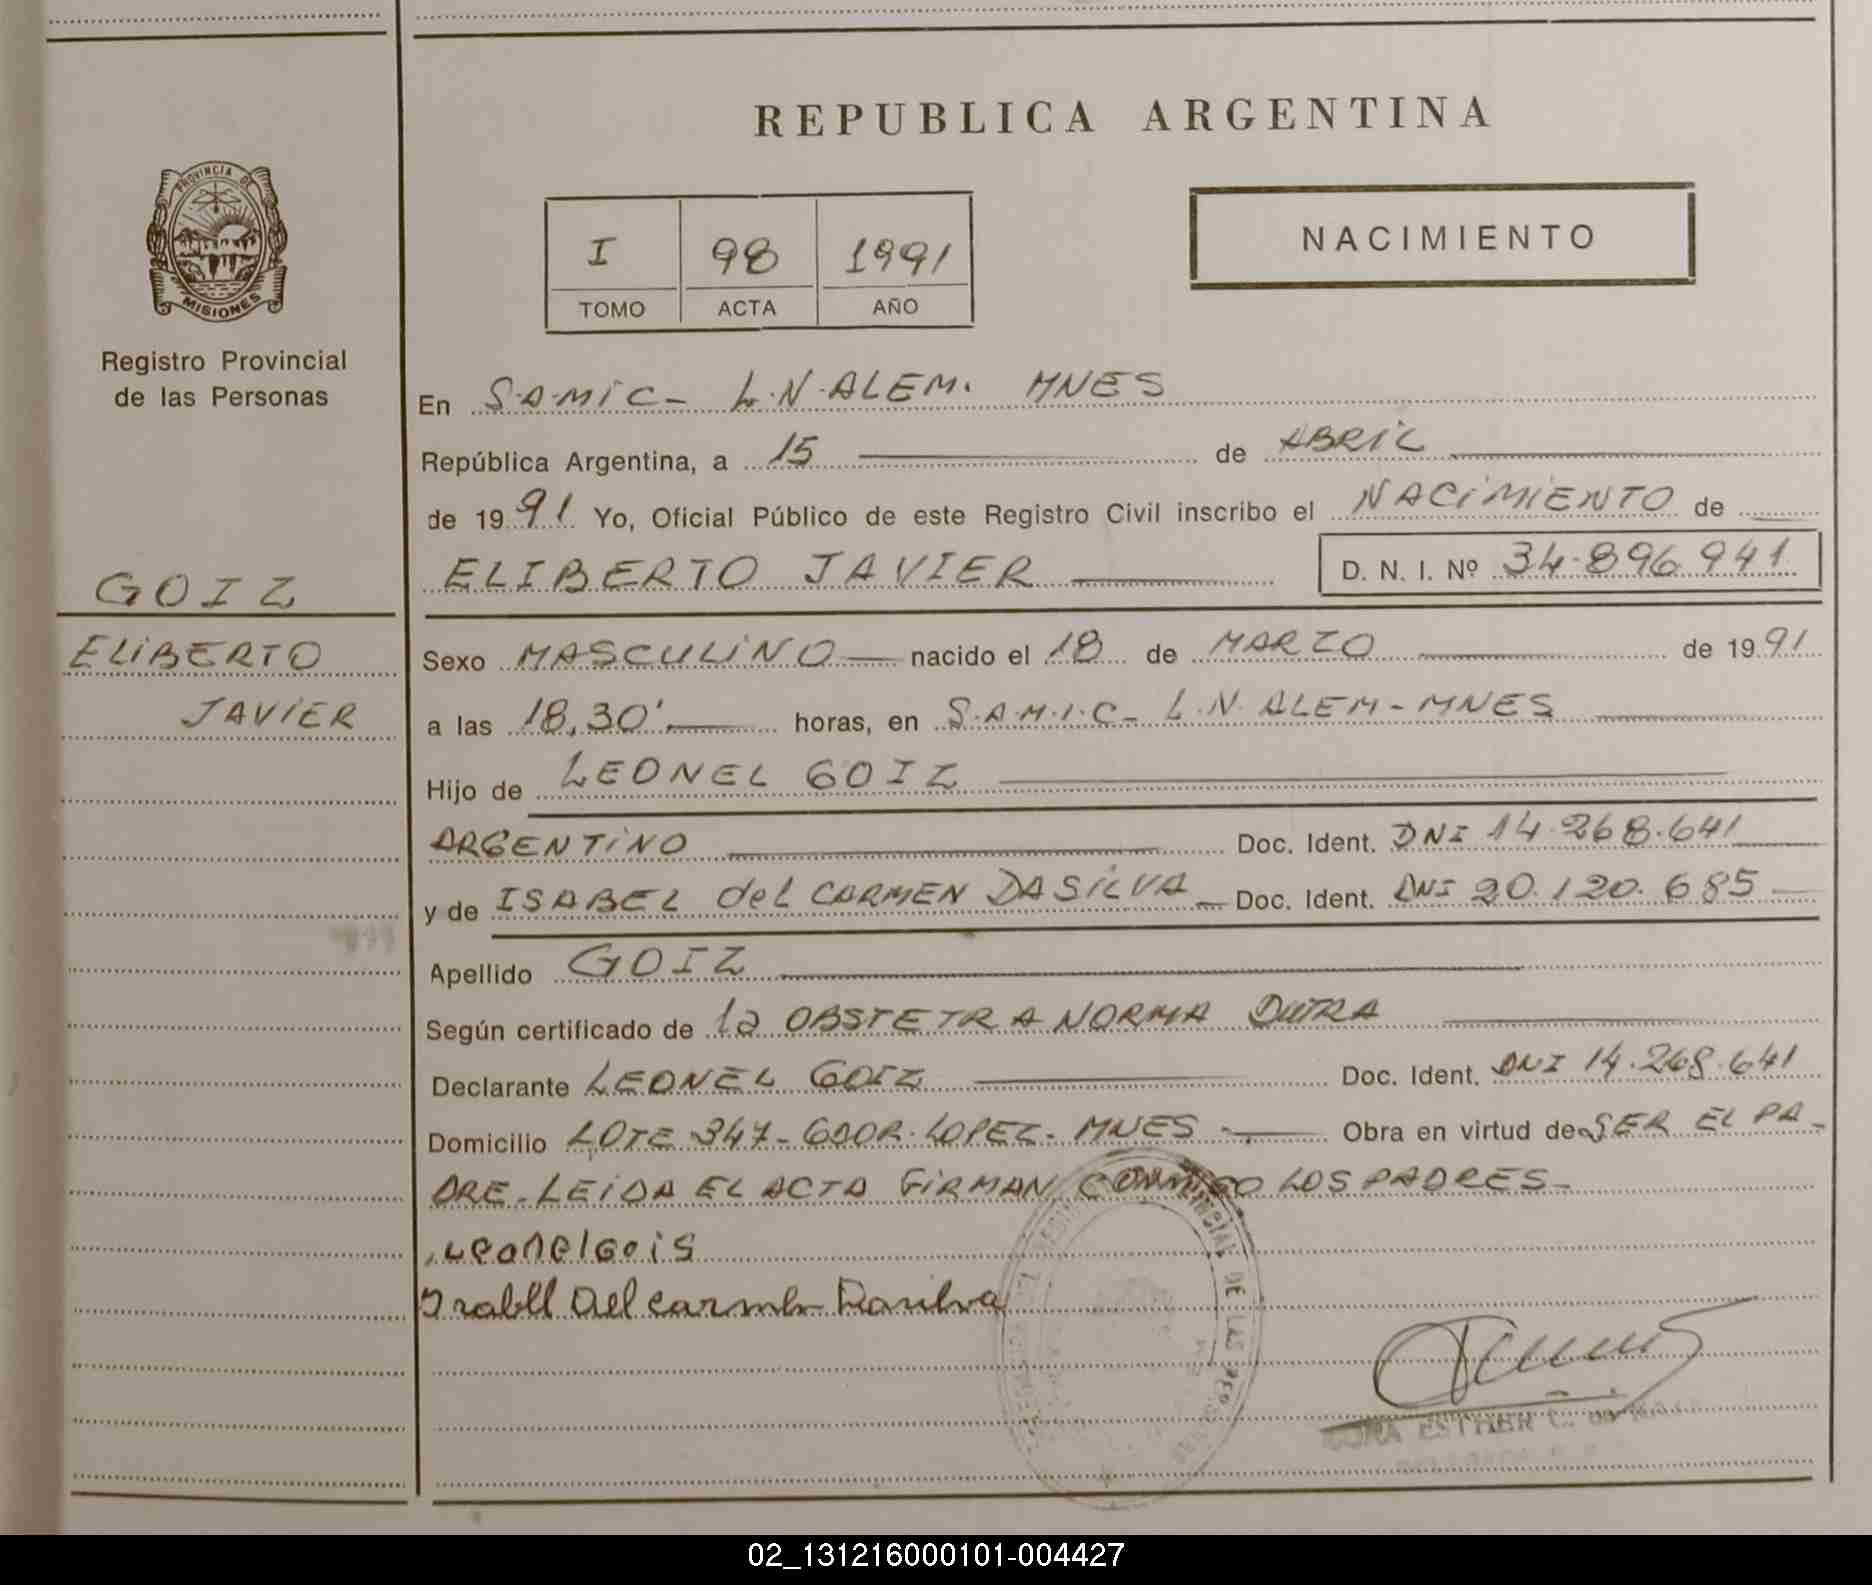 REPUBLICA ARGENTINA
PROVINCIA DE
MISIONES
Registro Provincial
de las Personas
I 98 1991
TOMO ACTA AÑO
NACIMIENTO
En S.A.MIC- L.N.ALEM. MNES
República Argentina, a 15 de ABRIL
de 1991 Yo, Oficial Público de este Registro Civil inscribo el NACIMIENTO de
ELIBERTO JAVIER D. N. I. Nº 34.896.941
GOIZ
ELIBERTO
JAVIER
Sexo MASCULINO nacido el 18 de MARZO de 1991
a las 18,30' horas, en S.A.M.I.C- L.N. ALEM-MNES
Hijo de LEONEL GOIZ
ARGENTINO Doc. Ident. DNI 14.268.641
y de ISABEL del CARMEN DASILVA Doc. Ident. DNI 20.120.685
Apellido GOIZ
Según certificado de la OBSTETRA NORMA DUTRA
Declarante LEONEL GOIZ Doc. Ident. DNI 14.268.641
Domicilio LOTE 347-GDOR.LOPEZ. MNES Obra en virtud de SER EL PA-
DRE-LEIDA EL ACTA FIRMAN CONMIGO LOS PADRES-
Leonel Gois
Isabel Del Carmen Dasilva
DE LAS
ESTHER
02_131216000101-004427